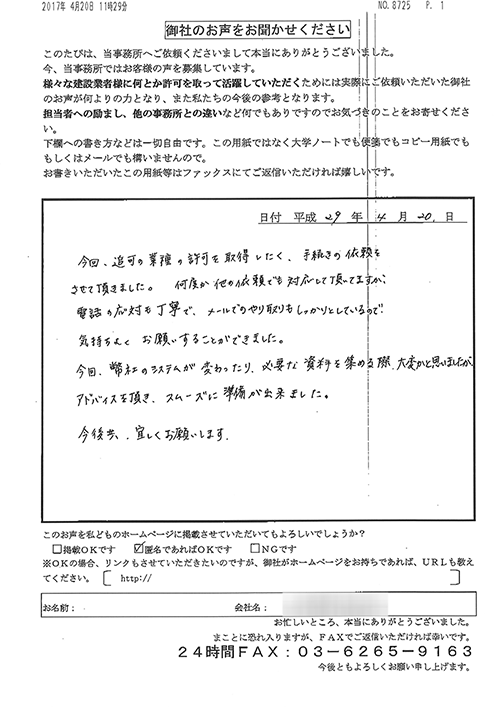 2017年 4月20日 11時29分 NO. 8725 P. 1
御社のお声をお聞かせください
このたびは、当事務所へご依頼くださいまして本当にありがとうございました。
今、当事務所ではお客様の声を募集しています。
様々な建設業者様に何とか許可を取って活躍していただくためには実際にご依頼いただいた御社
のお声が何よりの力となり、また私たちの今後の参考となります。
担当者への励まし、他の事務所との違いなど何でもありですのでお気づきのことをお寄せくださ
い。
下欄への書き方などは一切自由です。この用紙ではなく大学ノートでも便箋でもコピー用紙でも
もしくはメールでも構いませんので。
お書きいただいたこの用紙等はファックスにてご返信いただければ嬉しいです。
日付 平成 29 年 4 月 20 日
今回、追可の業種の許可を取得したく、手続きの依頼を
させて頂きました。 何度か他の依頼でも対応して頂いてますが、
電話の応対も丁寧で、メールでのやり取りもしっかりとしているので
気持ちよく お願いすることができました。
今回、弊社のシステムが変わったり、必要な資料を集める際、大変かと思いましたが
アドバイスを頂き、スムーズに準備が出来ました。
今後共、宜しくお願いします。
このお声を私どものホームページに掲載させていただいてもよろしいでしょうか？
□掲載OKです ☑匿名であればOKです □NGです
※OKの場合、リンクもさせていただきたいのですが、御社がホームページをお持ちであれば、URLも教え
てください。 [ http:// ]
お名前： 会社名：
お忙しいところ、本当にありがとうございました。
まことに恐れ入りますが、FAXでご返信いただければ幸いです。
24時間FAX：03-6265-9163
今後ともよろしくお願い申し上げます。